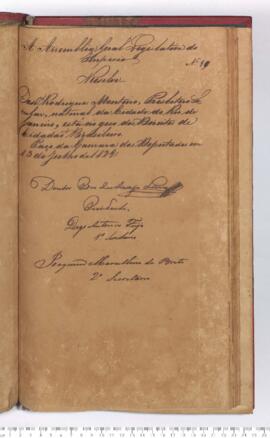 A Assemblea Geral Legislativa do
Imperio
Nº 19
Resolve
Rodrigues Monteiro, Presbitero Se-
cular, natural da Cidade do Rio de
Janeiro, está no gozo dos Direitos de
Cidadão Brasileiro.
Paço da Camara dos Deputados em
13 de Julho de
Presidente
Diogo Antonio Feijó
1º Secretario
Joaquim Marcellino de Brito
2º Secretario